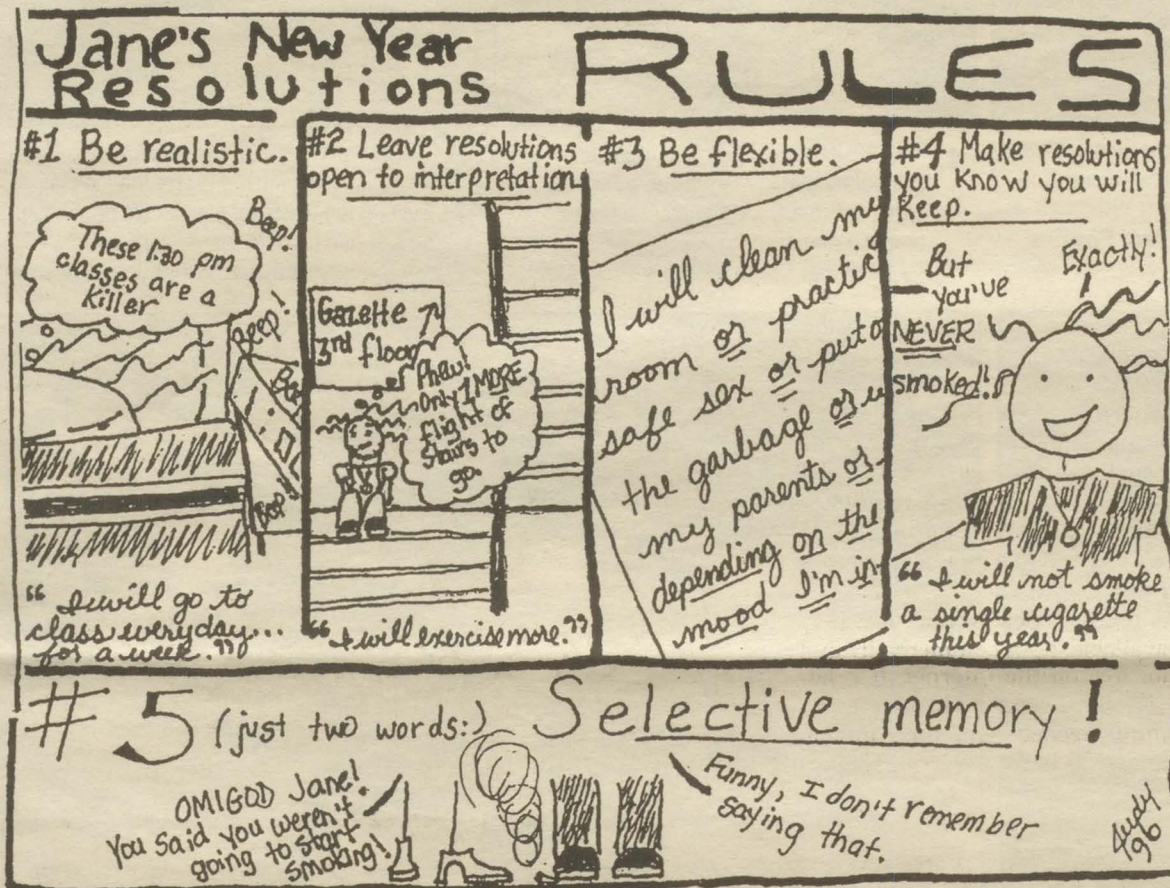 Jane's New Year
Resolutions
RULES
#1 Be realistic.
Beep!
These 1:30 pm
classes are a
killer
Beep!
Bop!
"I will go to
class everyday...
for a week."
#2 Leave resolutions
open to interpretation
Gazette
3rd floor
Phew!
Only 1 MORE
flight of
stairs to
go.
"I will exercise more."
#3 Be flexible.
I will clean my
room or practic
safe sex or put o
the garbage or
my parents or
depending on the
mood I'm in
#4 Make resolutions
you know you will
keep.
But
you've
NEVER
smoked!
Exactly!
"I will not smoke
a single cigarette
this year."
#5 (just two words:) Selective memory!
OMIGOD Jane!
You said you weren't
going to start
smoking!
Funny, I don't remember
saying that.
96